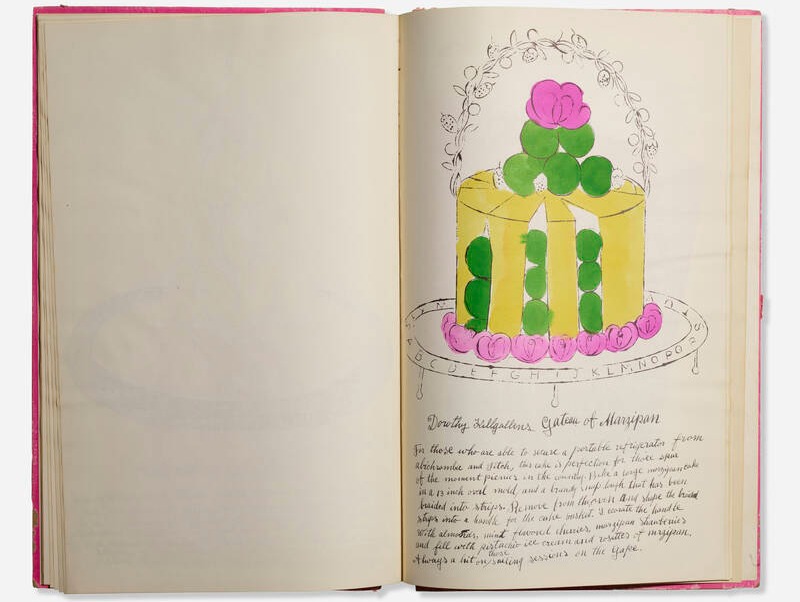 A B C D E F G H I J K L M N O P Q R S T U
Dorothy Killgallens Gateau of Marzipan
For those who are able to secure a portable refrigerator from
abichrombie and fitch, this cake is perfection for those spur
of the moment picnics in the country. Bake a large marzipan cake
in a 13 inch oval mold, and a brandy snap dough that has been
braided into strips. Remove from the oven and shape the braided
strips into a handle for the cake basket. Decorate the handle
with almonds, mint flavored cherries, marzipan strawberries
and fill with pistachio ice cream and rosettes of marzipan.
Always a hit on those smiling sessions on the